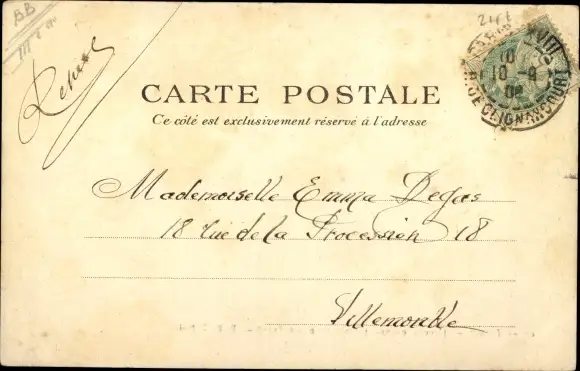 BB
CARTE POSTALE
Ce côté est exclusivement réservé à l'adresse
Mademoiselle Emma Degas
18 rue de la Procession 18
Villemomble
PARIS XVIII
10
10 - 9
R. DE CLIGNANCOURT